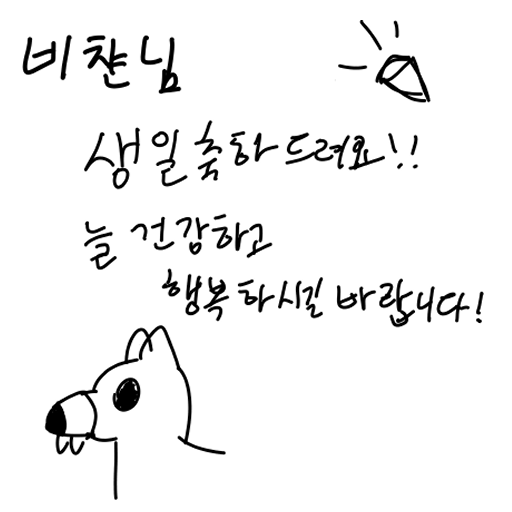 비챤님
생일축하드려요!!
늘 건강하고
행복하시길 바랍니다!